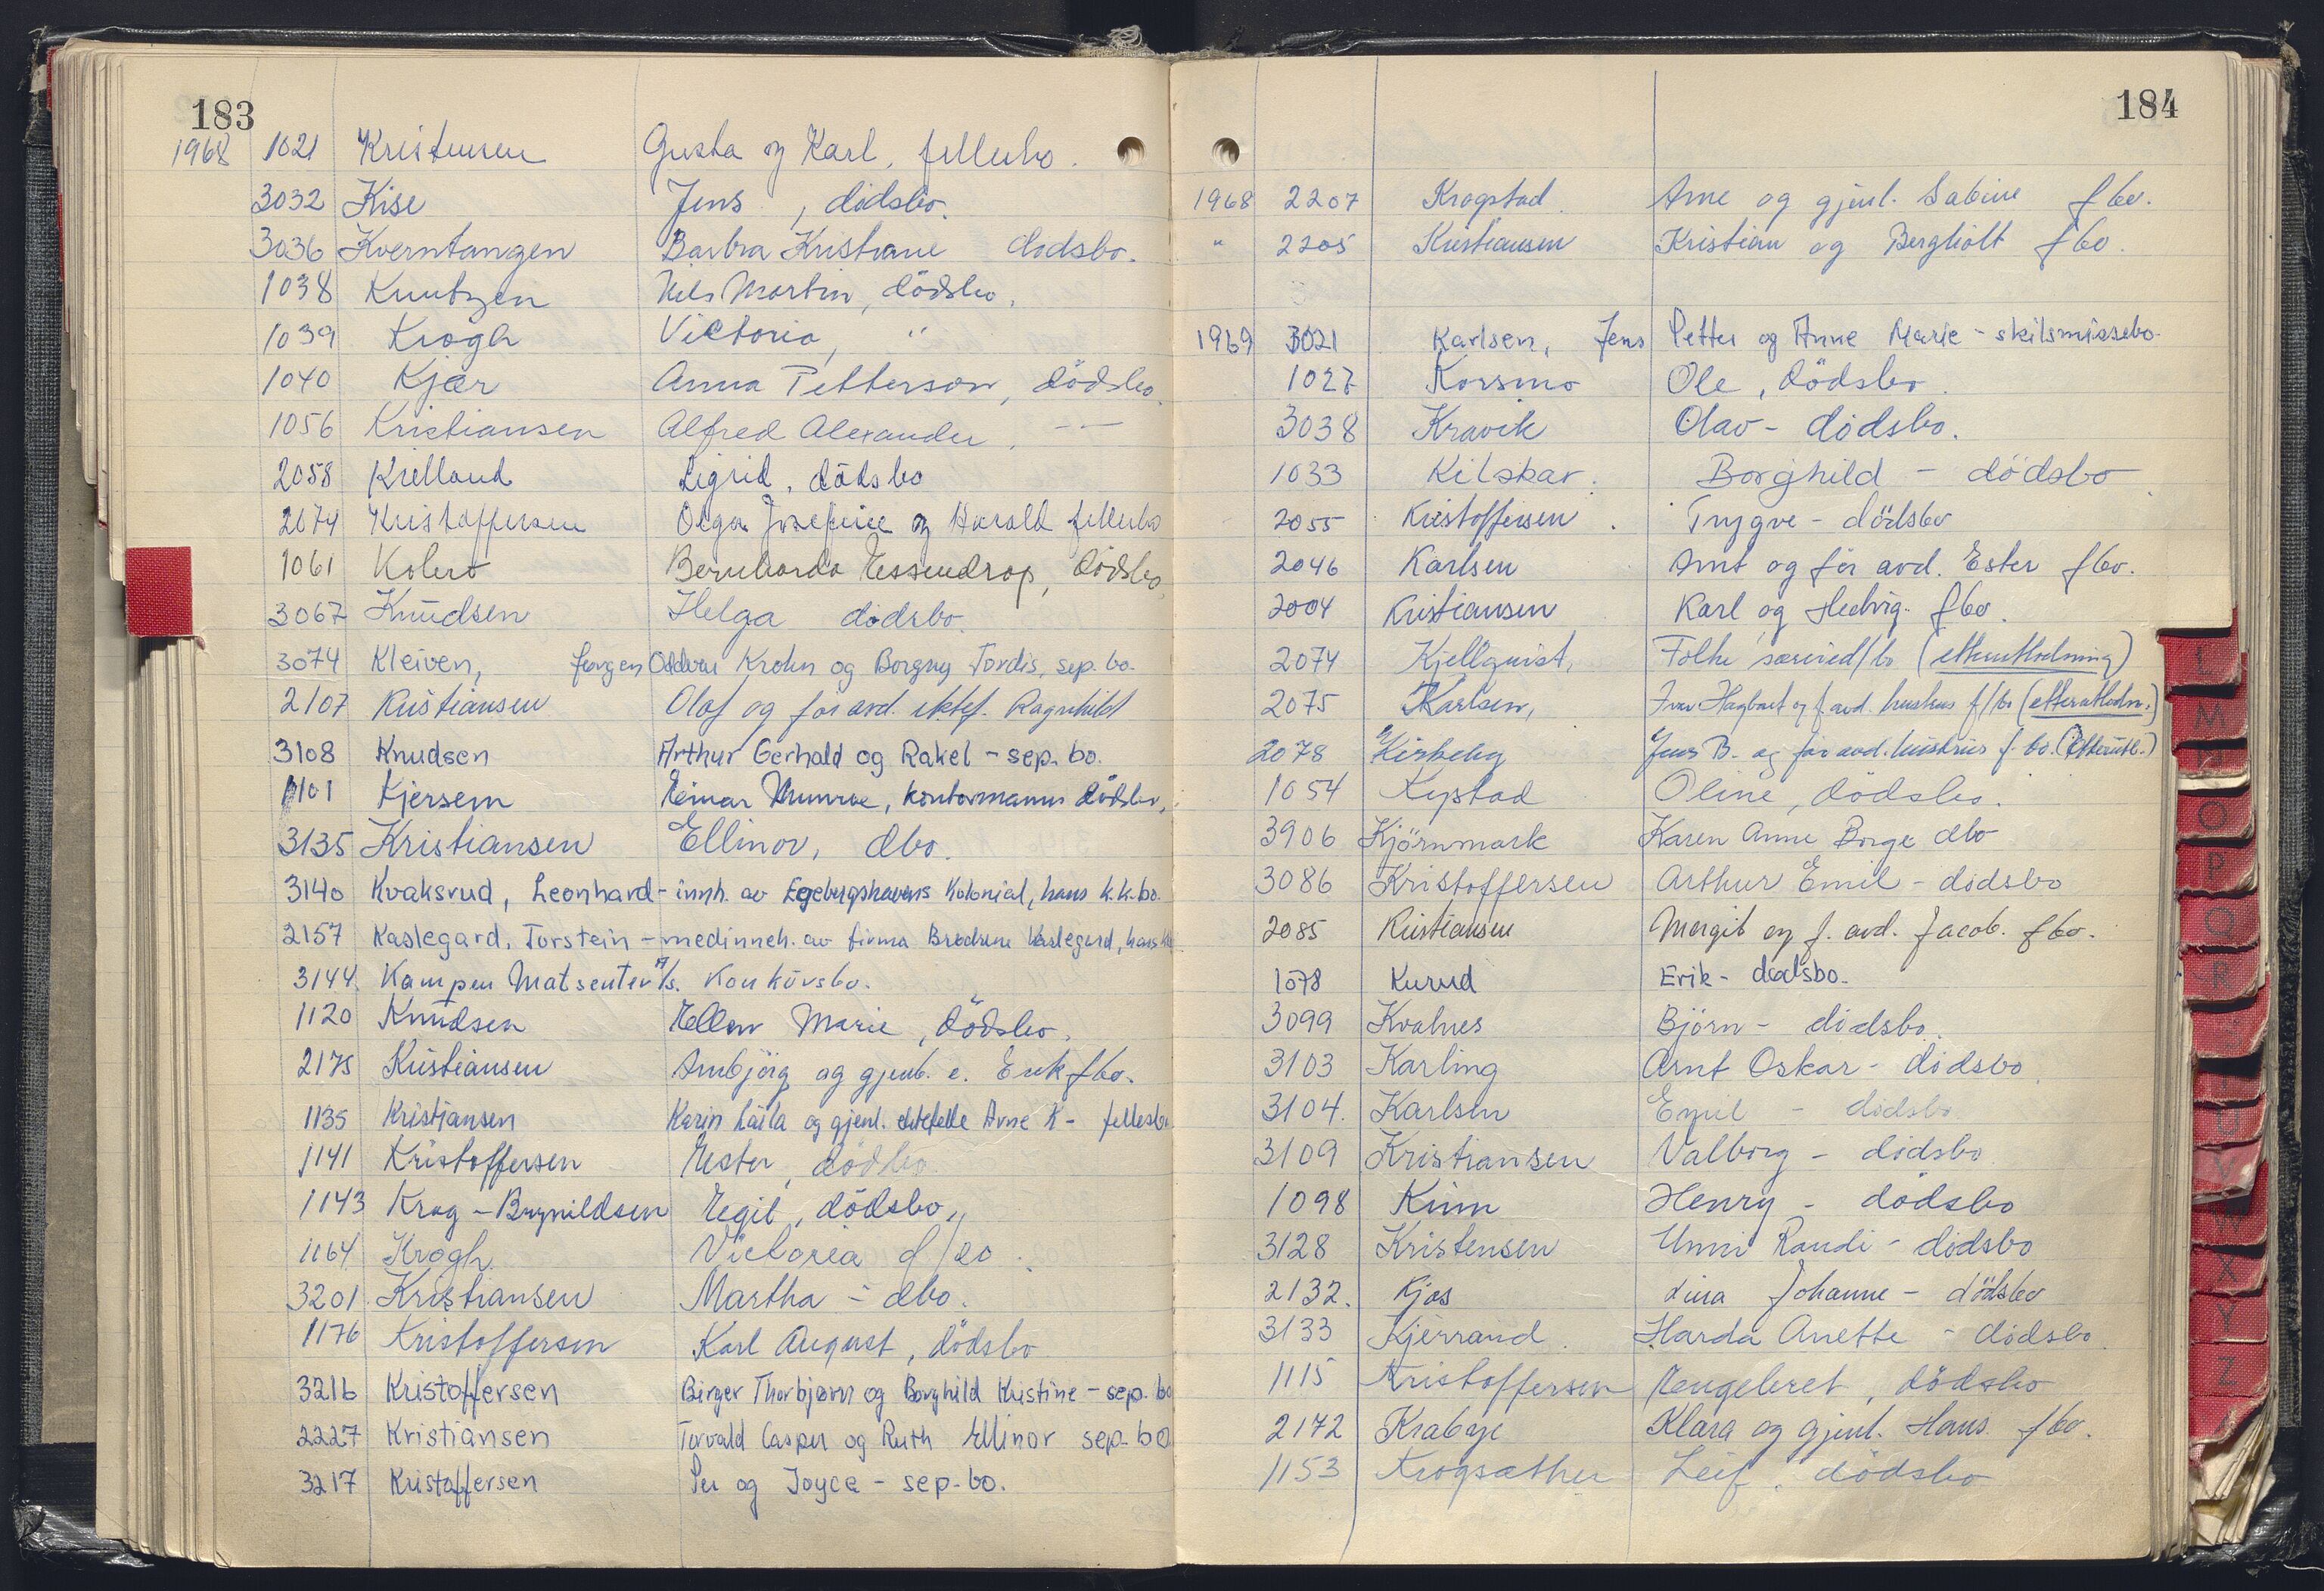 183
1968 1021 Kristensen Gusta og Karl, fellesbo.
3032 Kise Jens, dødsbo.
3036 Kverntangen Barbra Kristiane dødsbo.
1038 Knutzen Nils Martin, dödsbo.
1039 Krogh Victoria, "
1040 Kjær Anna Petterson, dödsbo.
1056 Kristiansen Alfred Alexander, - —
2058 Kielland Sigrid, dödsbo
2074 Kristoffersen Olga Josefine og Harald fellesbo
1061 Kolerö Bernharda Essendrop, dödsbo
3067 Knudsen Helga dødsbo.
3074 Kleiven, Jørgen Oddvar Krohn og Borgny Tordis, sep. bo.
2107 Kristiansen Olaf og før avd. ektef. Ragnhild
3108 Knudsen Arthur Gerhald og Rakel - sep. bo.
1101 Kjersem Einar Munroe, kontormann dödsbo,
3135 Kristiansen Ellinor, dbo.
3140 Kvaksrud, Leonhard - innh. av Egebergshavens Kolonial, hans k.k.bo.
2157 Kaslegard, Torstein - medinneh. av firma Brødrene Kaslegard, hans
3144. Kampen Matsenter A/s. Konkursbo.
1120 Knudsen Ellen Marie, dödsbo.
2175 Kristiansen Arnbjörg og gjenl. e. Erik fbo.
1135 Kristiansen Karin Laila og gjenl. ektefelle Arne K - fellesbo
1141 Kristoffersen Ester, dödsbo
1143 Krog-Brynildsen Egil, dödsbo,
1164 Krogh Victoria d/bo.
3201 Kristiansen Martha - dbo.
1176 Kristoffersen Karl August, dödsbo
3216 Kristoffersen Birger Thorbjørn og Borghild Kristine - sep. bo
2227 Kristiansen Torvald Casper og Ruth Ellinor sep. bo
3217 Kristoffersen Per og Joyce - sep. bo.
184
1968 2207 Krogstad Arne og gjenl. Sabine fbo.
" 2205 Kristiansen Kristian og Bergliolt fbo.
1969 3021 Karlsen, Jens Petter og Anne Marie - skilsmissebo.
1027 Korsmo Ole, dödsbo.
3038 Kravik Olav - dødsbo.
1033 Kilskar. Borghild - dödsbo
2055 Kristoffersen. Trygve - dödsbo
2046 Karlsen Arnt og før avd. Ester fbo.
2004 Kristiansen Karl og Hedvig. fbo.
2074 Kjellquist, Folke særeied/bo (etterutlodning)
2075 Karlsen, Ivar Hagbart og f. avd. hustrus f/bo (etterutlodn.)
2078 Kirkeby Jens B. og før avd. hustrus f. bo. (Etterutl.)
1054 Kystad Oline, dödsbo.
3906 Kjörnmark Karen Anne Borge dbo
3086 Kristoffersen Arthur Emil - dødsbo
2085 Kristiansen Margit og f. avd. Jacob. fbo.
1078 Kurud Erik - dødsbo.
3099 Kvalnes Björn - dødsbo.
3103 Karling Arnt Oskar - dødsbo
3104. Karlsen Emil - dødsbo
3109 Kristiansen Valborg - dødsbo
1098 Kinn Henry - dödsbo
3128 Kristensen Unni Randi - dødsbo
2132. Kjos Lina Johanne - dödsbo
3133 Kjerrand Harda Anette - dødsbo
1115 Kristoffersen Engebret, dödsbo
2172 Krabye Klara og gjenl. Hans. fbo.
1153 Krogsæther Leif, dödsbo
L
M
N
O
P
Q
R
T
U
V
W
X
Y
Z